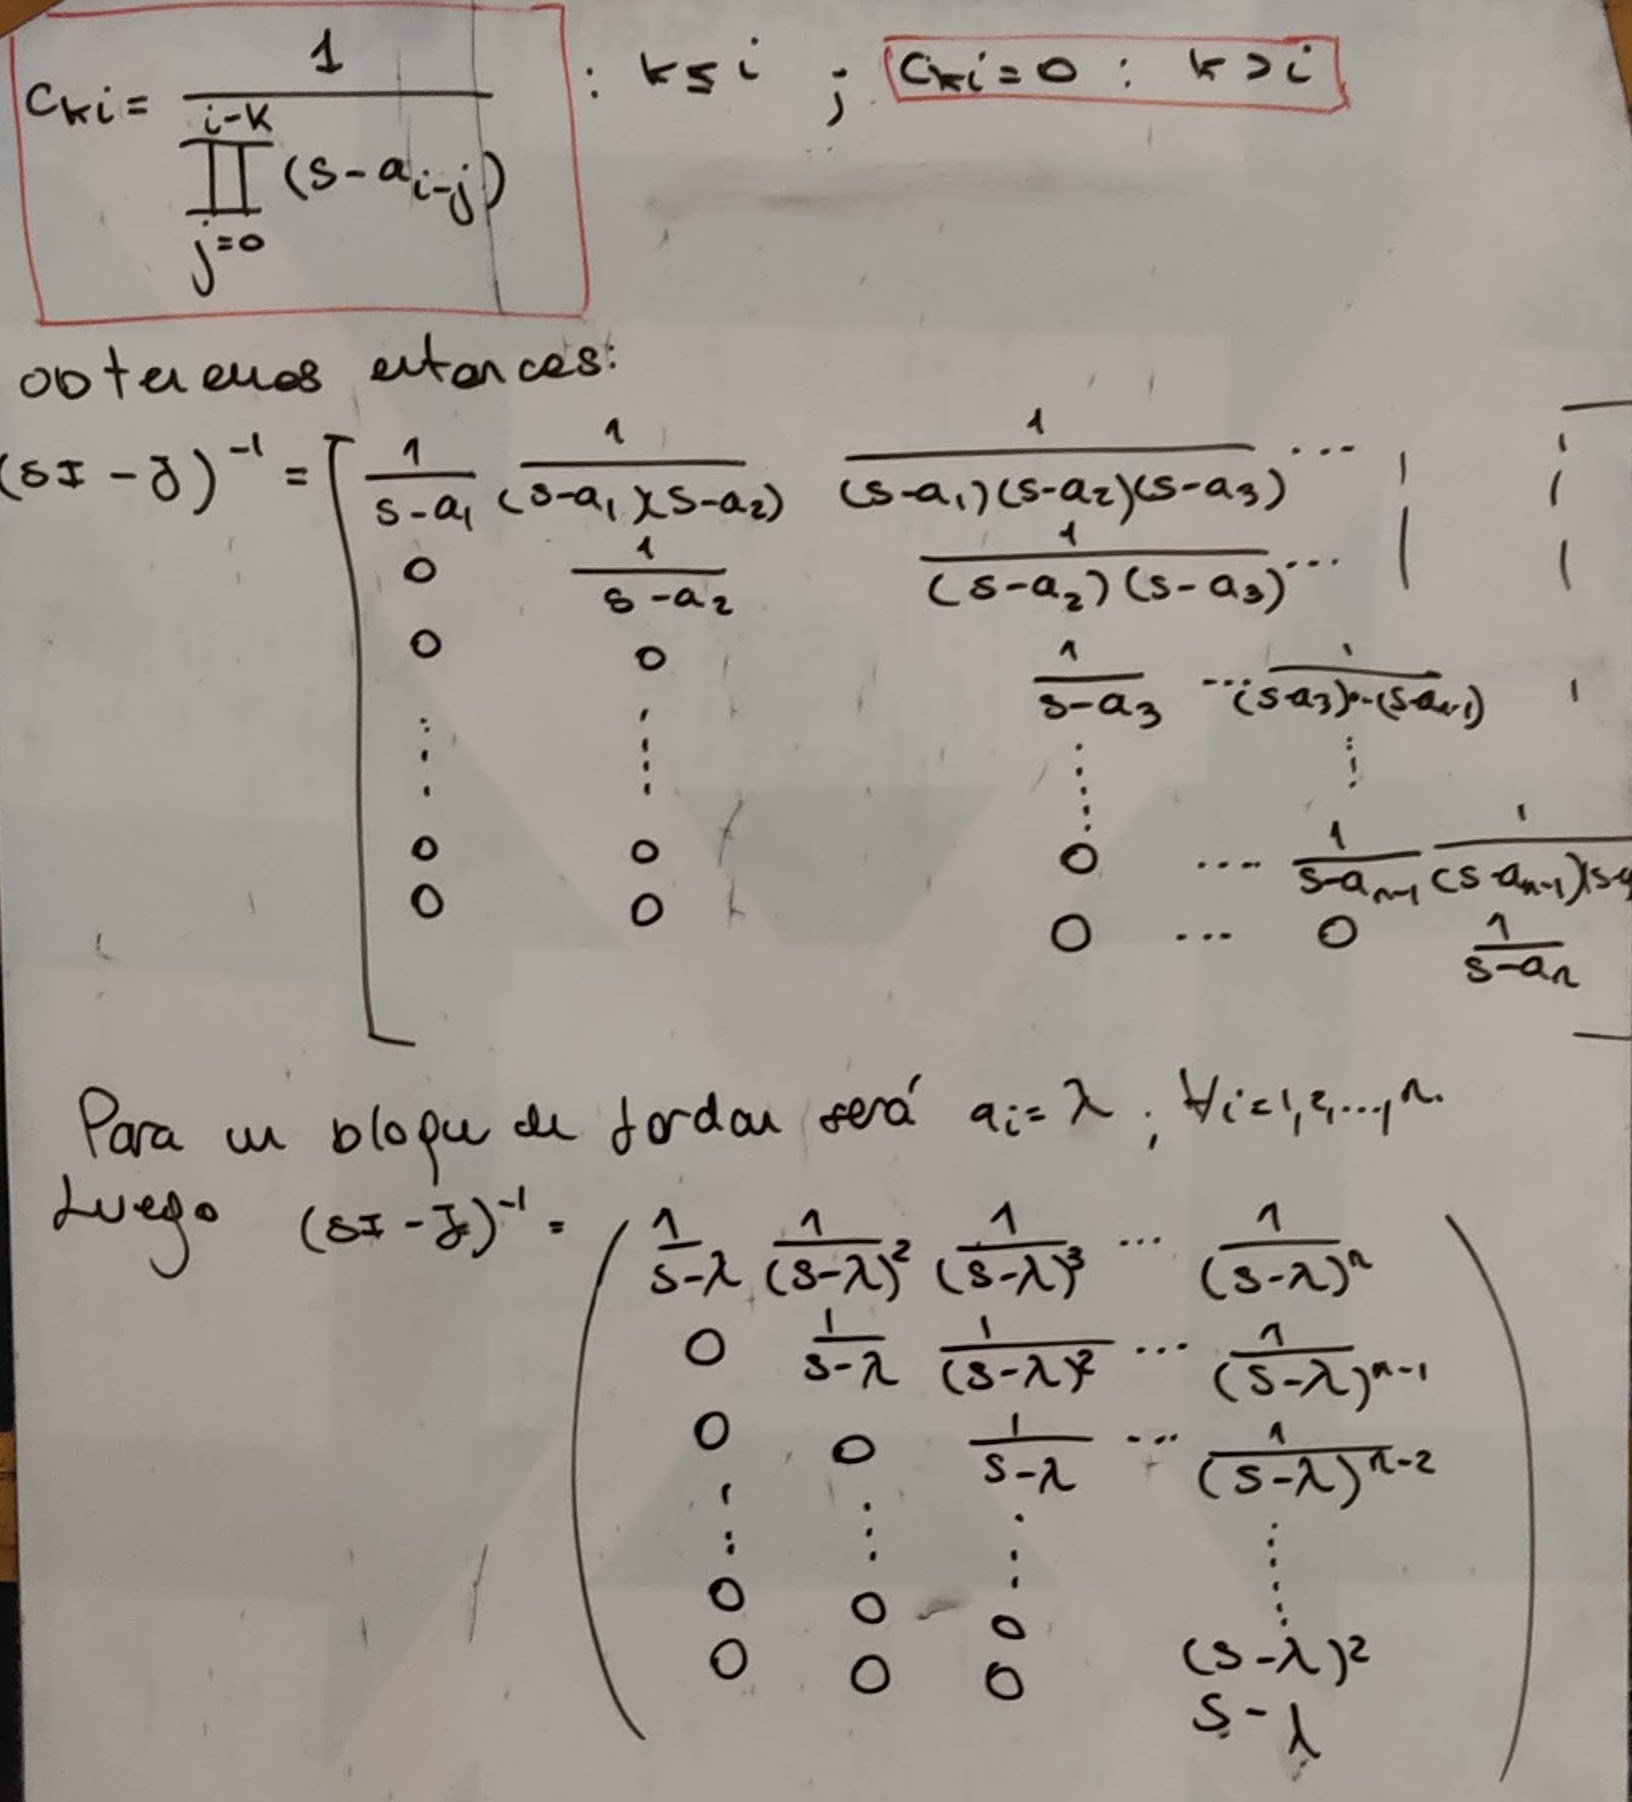 Cki = 1 / ∏_{j=0}^{i-k} (s-a_{i-j}) : k≤i ; Cki=0 : k>i
obtenemos entonces:
(sI-J)⁻¹ = [ 1/(s-a₁) 1/((s-a₁)(s-a₂)) 1/((s-a₁)(s-a₂)(s-a₃)) ...
0 1/(s-a₂) 1/((s-a₂)(s-a₃)) ...
0 0 1/(s-a₃) ... 1/((s-a₃)...(s-a_{n-1}))
0 0 0 .... 1/(s-a_{n-1}) 1/((s-a_{n-1})(s-a
0 0 0 ... 0 1/(s-a_n)
Para un bloque de Jordan será ai=λ ; ∀i=1,2,...,n.
Luego (sI-J)⁻¹ = ( 1/(s-λ) 1/(s-λ)² 1/(s-λ)³ ... 1/(s-λ)ⁿ
0 1/(s-λ) 1/(s-λ)² ... 1/(s-λ)ⁿ⁻¹
0 0 1/(s-λ) ... 1/(s-λ)ⁿ⁻²
0 0 0 (s-λ)²
0 0 0 s-λ )